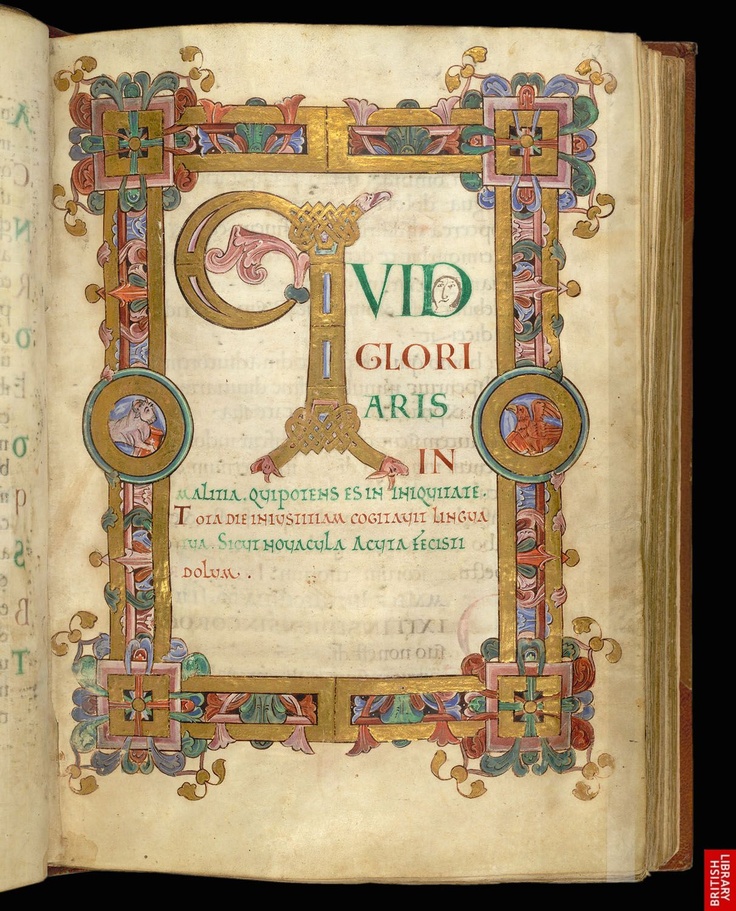 QVID
GLORI
ARIS
IN
MALITIA. QUI POTENS ES IN INIQUITATE.
TOTA DIE INIUSTITIAM COGITAUIT LINGUA
TUA. SICUT NOUACULA ACUTA FECISTI
DOLUM.
A
C
N
R
O
E
O
q
p
S
B
T
BRITISH
LIBRARY